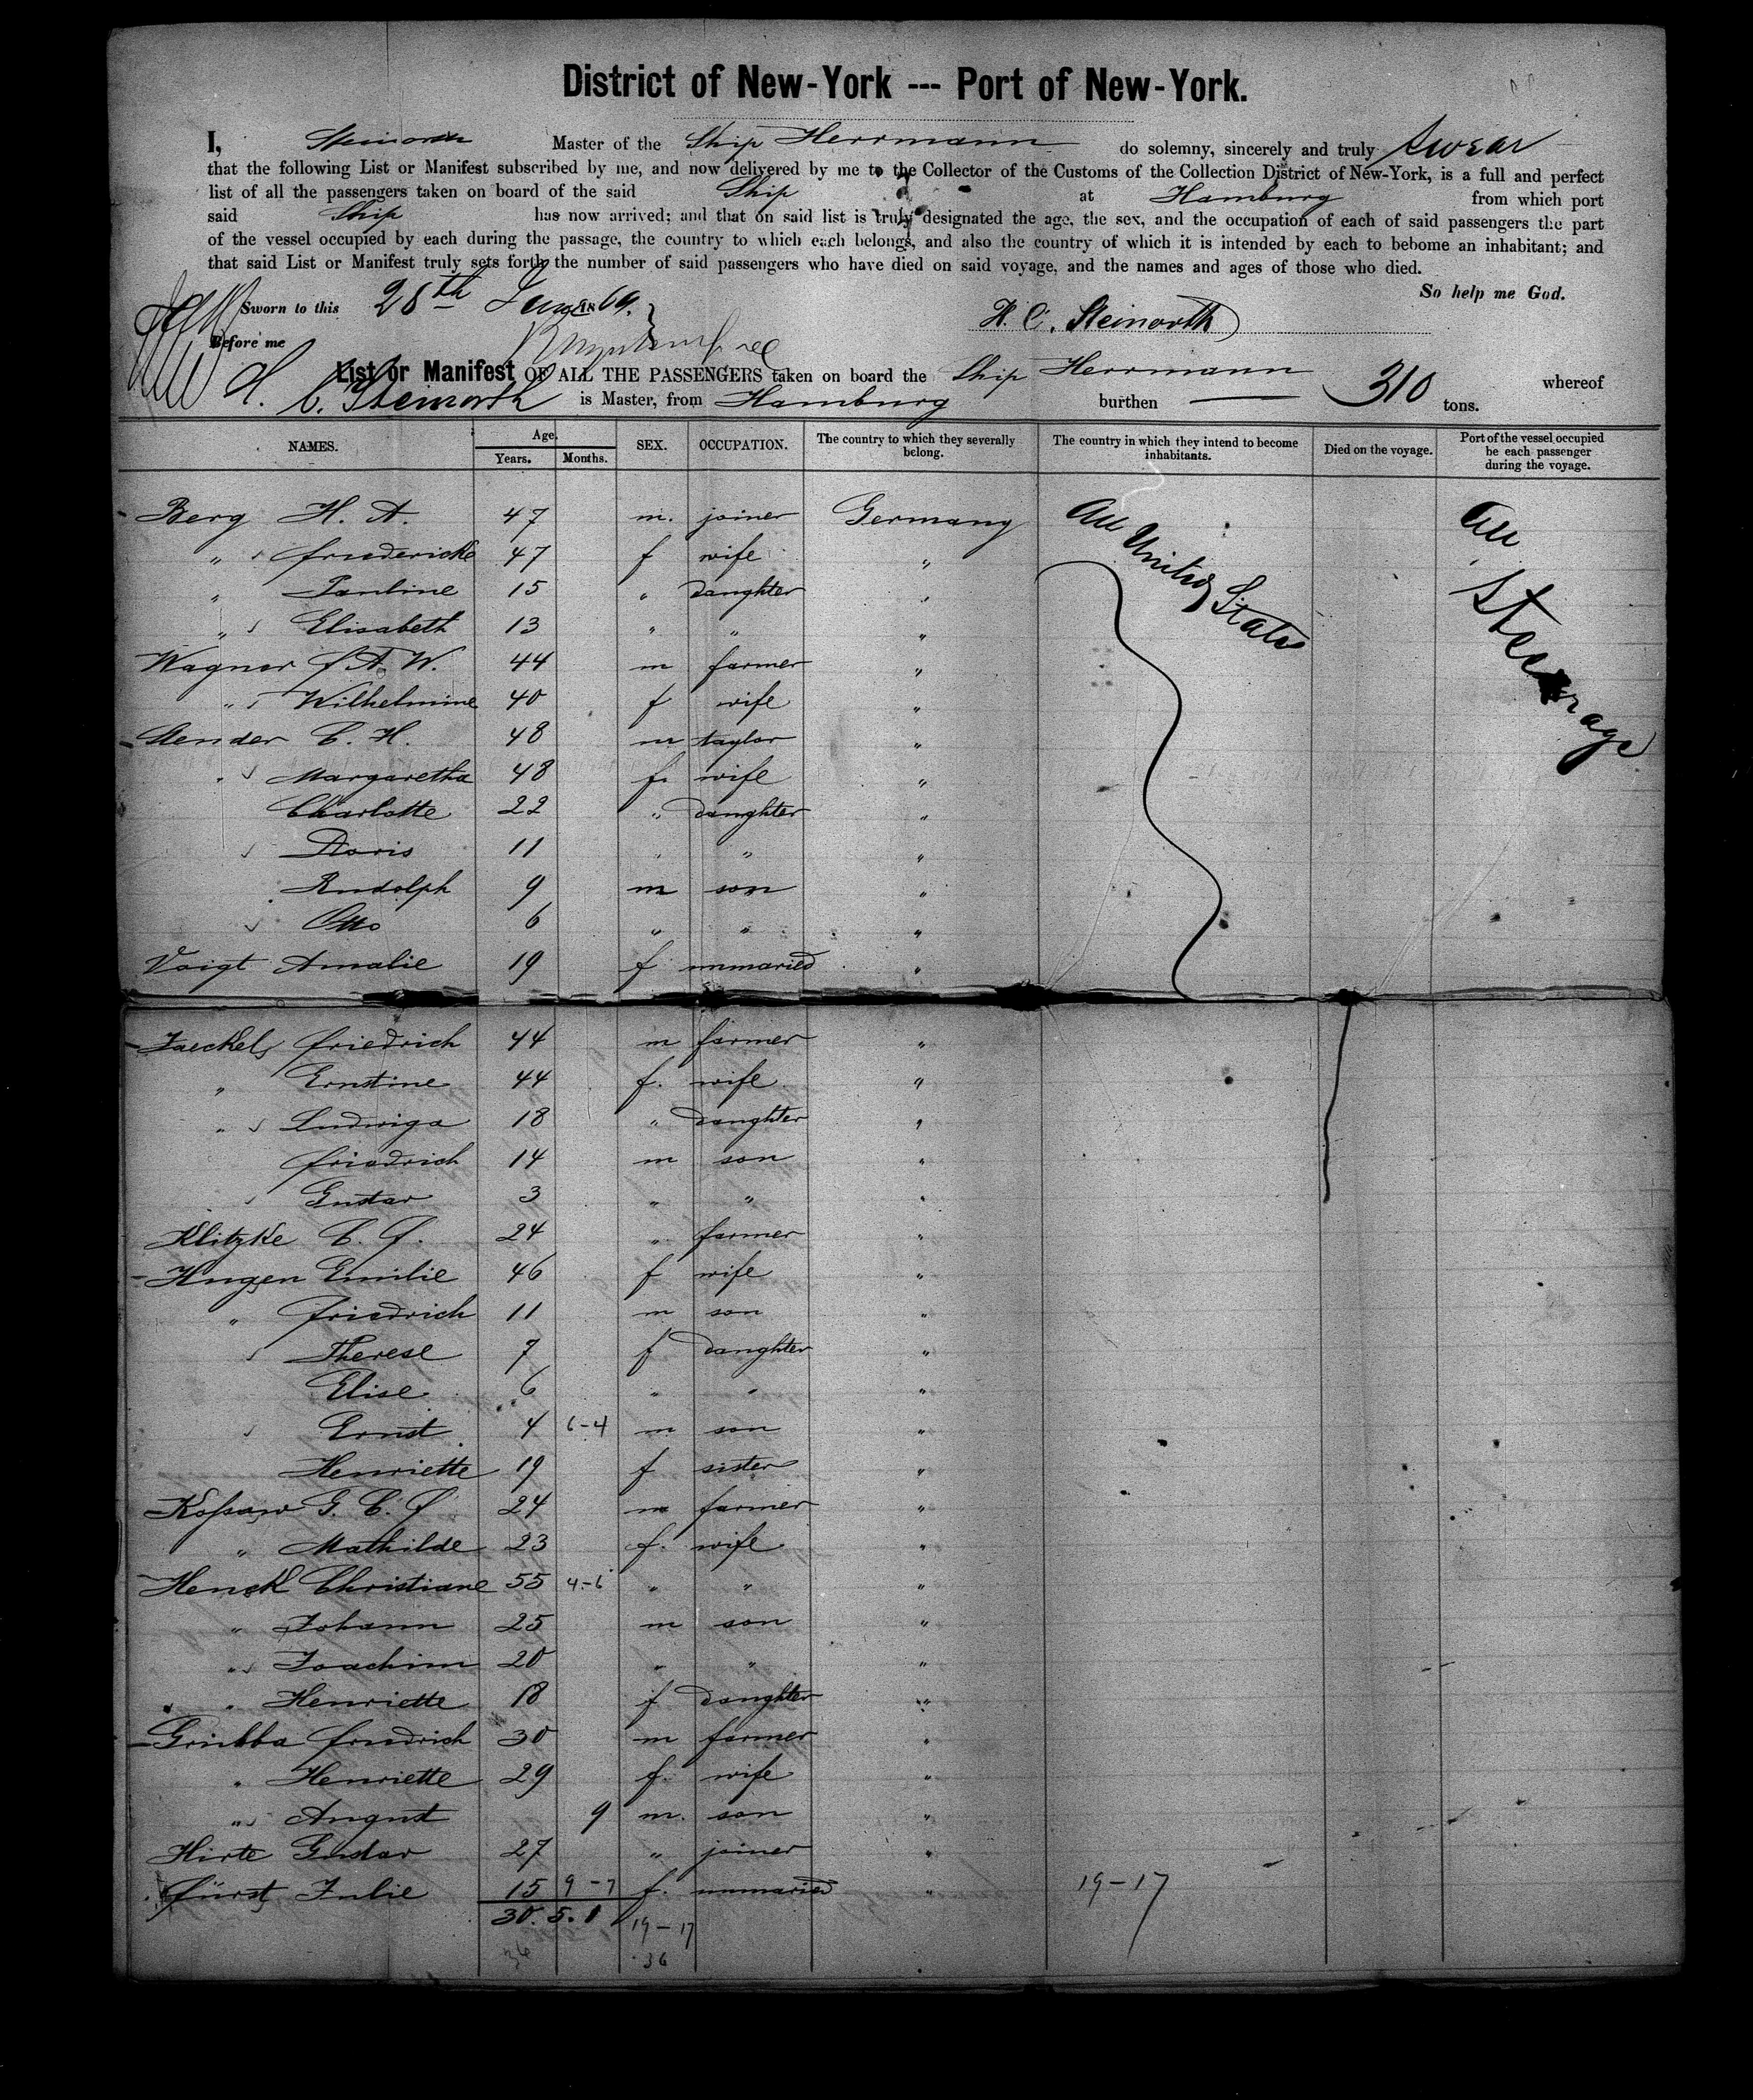 District of New-York --- Port of New-York.
I, Steinorth Master of the Ship Herrmann do solemny, sincerely and truly swear
that the following List or Manifest subscribed by me, and now delivered by me to the Collector of the Customs of the Collection District of New-York, is a full and perfect
list of all the passengers taken on board of the said Ship at Hamburg from which port
said Ship has now arrived; and that on said list is truly designated the age, the sex, and the occupation of each of said passengers the part
of the vessel occupied by each during the passage, the country to which each belongs, and also the country of which it is intended by each to bebome an inhabitant; and
that said List or Manifest truly sets forth the number of said passengers who have died on said voyage, and the names and ages of those who died.
So help me God.
Sworn to this 28th June 1869.
H. C. Steinorth
Before me
List or Manifest OF ALL THE PASSENGERS taken on board the Ship Herrmann whereof
H. C. Steinorth is Master, from Hamburg burthen 310 tons.
NAMES. Age. Years. Months. SEX. OCCUPATION. The country to which they severally belong. The country in which they intend to become inhabitants. Died on the voyage. Port of the vessel occupied be each passenger during the voyage.
Berg H. A. 47 m. joiner Germany All United States All Steerage
" friedericke 47 f wife "
" Pauline 15 " daughter "
" Elisabeth 13 " " "
Wagner f. A. W. 44 m farmer "
" Wilhelmine 40 f wife "
Stender C. H. 48 m taylor "
" Margaretha 48 f. wife "
Charlotte 22 " daughter "
Doris 11 " " "
Rudolph 9 m son "
Otto 6 " " "
Voigt Amalie 19 f unmaried "
Jaeckel friedrich 44 m farmer "
" Ernstine 44 f. wife "
" Ludwiga 18 " daughter "
friedrich 14 m son "
Gustav 3 " " "
Klitzke C. f. 24 " farmer "
Hugen Emilie 46 f wife "
" friedrich 11 m son "
Therese 7 f daughter "
Elise 6 " " "
Ernst 4 6-4 m son "
Henriette 19 f sister "
Kossow G. C. f 24 m farmer "
" Mathilde 23 f. wife "
Henck Christiane 55 4-6 " " "
" Johann 25 m son "
" Joachim 20 " " "
" Henriette 18 f daughter "
Grubba friedrich 30 m farmer "
" Henriette 29 f. wife "
" August 9 m. son "
Hirte Gustav 27 " joiner "
fürst Julie 15 9-7 f. unmaried " 19-17
30. 5. 1 19-17
36 36